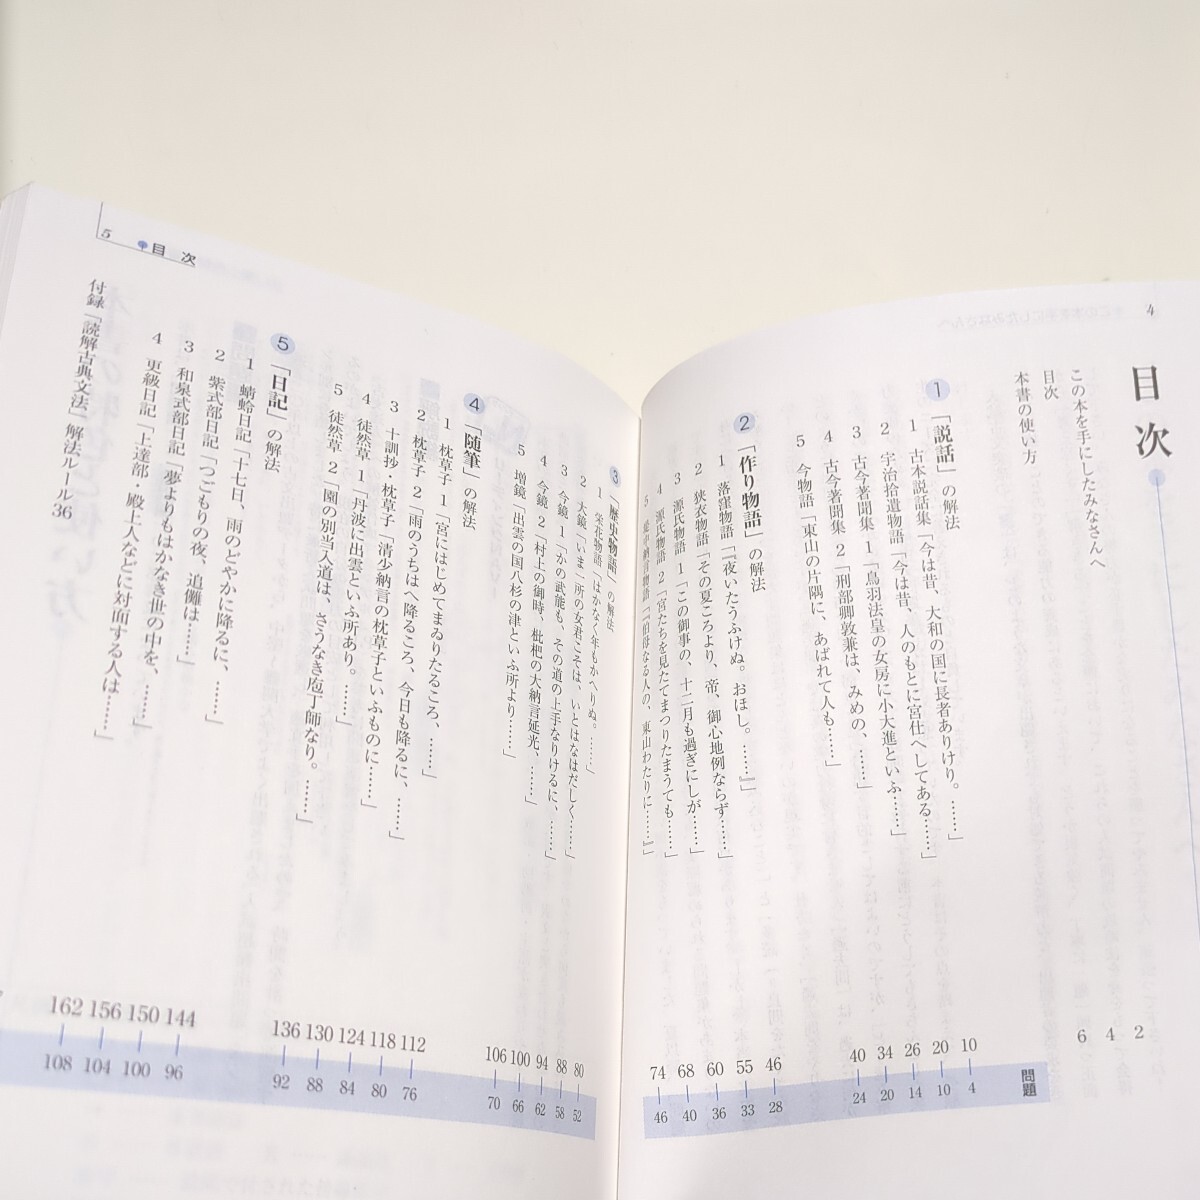 4
目次
この本を手にしたみなさんへ 2
目次 4
本書の使い方 6
問題
1 「説話」の解法
1 古本説話集「今は昔、大和の国に長者ありけり。……」 10 4
2 宇治拾遺物語「今は昔、人のもとに宮仕へしてある……」 20 10
3 古今著聞集 1「鳥羽法皇の女房に小大進といふ……」 26 14
4 古今著聞集 2「刑部卿敦兼は、みめの、……」 34 20
5 今物語「東山の片隅に、あばれて人も……」 40 24
2 「作り物語」の解法
1 落窪物語「『夜いたうふけぬ。おほし。……』」 46 28
2 狭衣物語「その夏ころより、帝、御心地例ならず……」 55 33
3 源氏物語 1「この御事の、十二月も過ぎにしが……」 60 36
4 源氏物語 2「宮たちを見たてまつりたまうても……」 68 40
5 堤中納言物語「『怕得なる人の、東山わたりに……』」 74 46
5 目次
3 「歴史物語」の解法
1 栄花物語「はかなく年もかへりぬ。……」 80 52
2 大鏡「いま一所の女君こそは、いとはなはだしく……」 88 58
3 今鏡 1「かの武能も、その道の上手なりけるに、……」 94 62
4 今鏡 2「村上の御時、枇杷の大納言延光、……」 100 66
5 増鏡「出雲の国八杉の津といふ所より……」 106 70
4 「随筆」の解法
1 枕草子 1「宮にはじめてまゐりたるころ、……」 112 76
2 枕草子 2「雨のうちはへ降るころ、今日も降るに、……」 118 80
3 十訓抄・枕草子「清少納言の枕草子といふものに……」 124 84
4 徒然草 1「丹波に出雲といふ所あり。……」 130 88
5 徒然草 2「園の別当入道は、さうなき庖丁師なり。……」 136 92
5 「日記」の解法
1 蜻蛉日記「十七日、雨のどやかに降るに、……」 144 96
2 紫式部日記「つごもりの夜、追儺は……」 150 100
3 和泉式部日記「夢よりもはかなき世の中を、……」 156 104
4 更級日記「上達部・殿上人などに対面する人は……」 162 108
付録「読解古典文法」解法ルール36